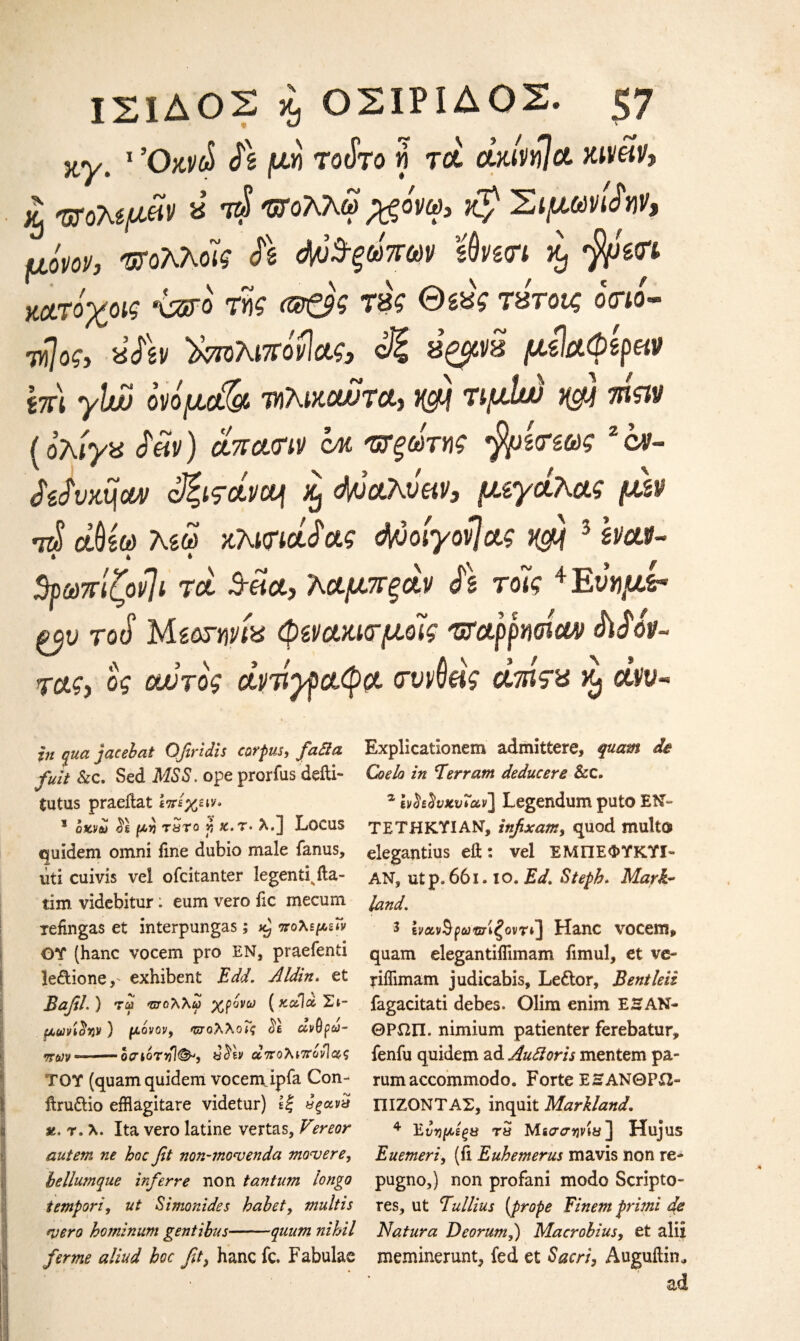 ΙΣΙΔΟΣ ϗ ΟΣΙΡΙΔΟΣ. 57
κγ. ¹ Ὀκνῶ δὲ μὴ τοῦτο ᾖ τὰ ἀκίνηlα κινεῖν,
ϗ πολεμεῖν ȣ τῷ πολλῷ χρόνῳ, κτ Σιμωνίδην,
μόνον, πολλοῖς δὲ ἀνθρώπων ἔθνεσι ϗ γένεσι
κατόχοις ὑπὸ τῆς πρὸς τȣ̀ς Θεȣ̀ς τȣ́τοις ὁσιό-
τηlος, ȣ̓δὲν ἀπολιπόνlας, ἐξ ȣ̓ρανȣ̃ μεlαφέρειν
ἐπὶ γῆν ὀνόμαlα τηλικαῦτα, καὶ τιμὴν καὶ πίςιν
(ὀλίγȣ δεῖν) ἅπασιν ἐκ πρώτης γενέσεως ² ἐν-
δεδυκῆαν ἐξιςάναι ϗ ἀναλύειν, μεγάλας μὲν
τῷ ἀθέῳ λεῷ κλισιάδας ἀνοίγονlας καὶ ³ ἐναν-
θρωπίζονlι τὰ θεῖα, λαμπρὰν δὲ τοῖς ⁴ Εὐημέ-
ρου τοῦ Μεσσηνίȣ φενακισμοῖς παρρησίαν διδόν-
τας, ὃς αὐτὸς ἀντίγραφα συνθεὶς ἀπίςȣ ϗ ἀνυ-
in qua jacebat Oſiridis corpus, facta
fuit &c. Sed MSS. ope prorſus deſti-
tutus praeſtat ἐπέχειν.
¹ ὀκνῶ δὲ μὴ τȣ͂το ᾖ κ. τ. λ.] Locus
quidem omni ſine dubio male ſanus,
uti cuivis vel oſcitanter legenti ſta-
tim videbitur: eum vero ſic mecum
refingas et interpungas; ϗ πολεμεῖν
ΟΥ (hanc vocem pro EN, praeſenti
lectione, exhibent Edd. Aldin. et
Baſil.) τῷ πολλῷ χρόνω (καlὰ Σι-
μωνίδην) μόνον, πολλοῖς δὲ ἀνθρώ-
πων —— ὁσιότηlος, ȣ̓δὲν ἀπολιπόνlας
ΤΟΥ (quam quidem vocem ipſa Con-
ſtructio efflagitare videtur) ἐξ ȣ̓ρανȣ̃
κ. τ. λ. Ita vero latine vertas, Vereor
autem ne hoc ſit non-movenda movere,
bellumque inferre non tantum longo
tempori, ut Simonides habet, multis
vero hominum gentibus—— quum nihil
ferme aliud hoc ſit, hanc ſc. Fabulae
Explicationem admittere, quam de
Coelo in Terram deducere &c.
² ἐνδεδυκυῖαν] Legendum puto EN-
TETHKYIAN, infixam, quod multo
elegantius eſt: vel ΕΜΠΕΦΥΚΥΙ-
ΑΝ, ut p. 661. 10. Ed. Steph. Mark-
land.
³ ἐνανθρωπίζοντι] Hanc vocem,
quam elegantiſſimam ſimul, et ve-
riſſimam judicabis, Lector, Bentleii
ſagacitati debes. Olim enim ΕΞΑΝ-
ΘΡΩΠ. nimium patienter ferebatur,
ſenſu quidem ad Auctoris mentem pa-
rum accommodo. Forte ΕΞΑΝΘΡΩ-
ΠΙΖΟΝΤΑΣ, inquit Markland.
⁴ Εὐημέρȣ τȣ͂ Μεσσηνίȣ] Hujus
Euemeri, (ſi Euhemerus mavis non re-
pugno,) non profani modo Scripto-
res, ut Tullius (prope Finem primi de
Natura Deorum,) Macrobius, et alii
meminerunt, ſed et Sacri, Auguſtin.
ad